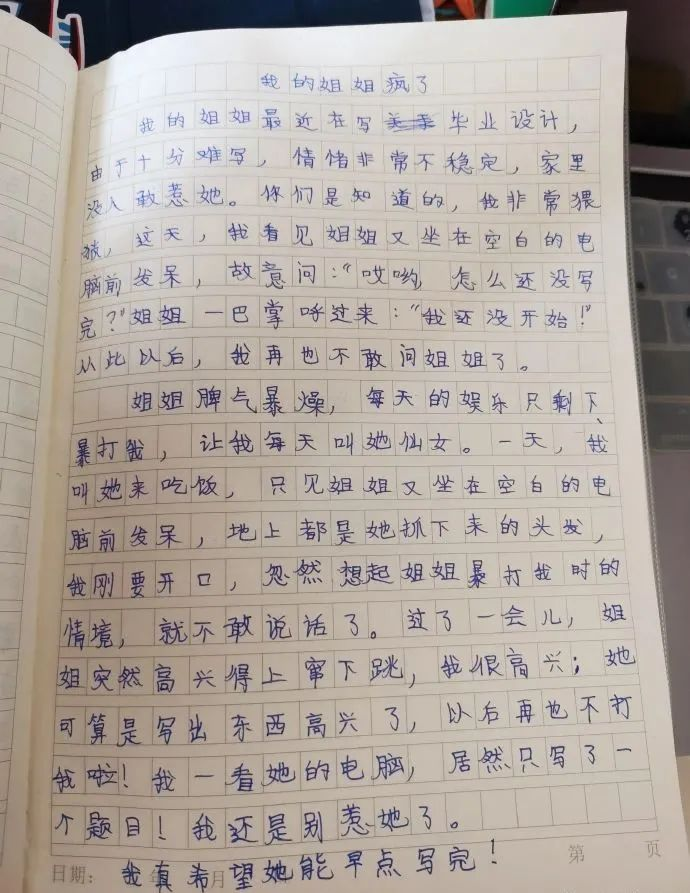 我的姐姐疯了
我的姐姐最近在写毕业设计，
由于十分难写，情绪非常不稳定，家里
没人敢惹她。你们是知道的，我非常猥
琐，这天，我看见姐姐又坐在空白的电
脑前发呆，故意问：“哎哟，怎么还没写
完？”姐姐一巴掌呼过来：“我还没开始！”
从此以后，我再也不敢问姐姐了。
姐姐脾气暴燥，每天的娱乐只剩下
暴打我，让我每天叫她仙女。一天，我
叫她来吃饭，只见姐姐又坐在空白的电
脑前发呆，地上都是她抓下来的头发，
我刚要开口，忽然想起姐姐暴打我时的
情境，就不敢说话了。过了一会儿，姐
姐突然高兴得上窜下跳，我很高兴；她
可算是写出东西高兴了，以后再也不打
我啦！我一看她的电脑，居然只写了一
个题目！我还是别惹她了。
我真希望她能早点写完！
日期： 年 月 第 页